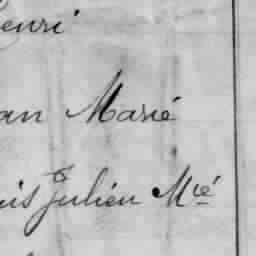 enri
an Marie
is Julien Mié